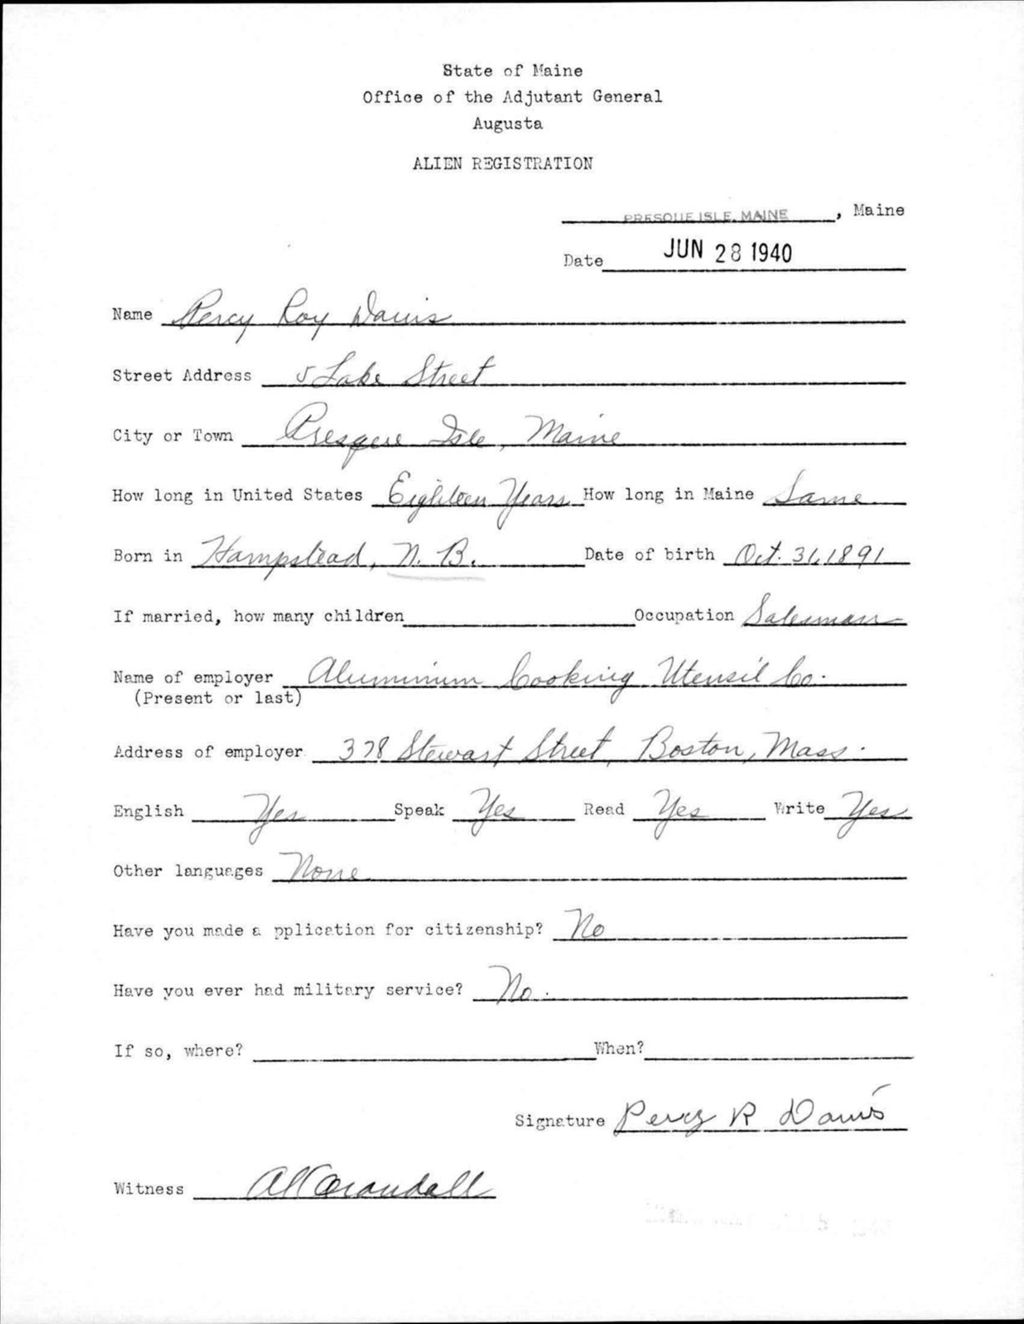 State of Maine
Office of the Adjutant General
Augusta
ALIEN REGISTRATION
PRESQUE ISLE, MAINE, Maine
Date JUN 28 1940
Name Percy Roy Davis
Street Address 5 Lake Street
City or Town Presque Isle, Maine
How long in United States Eighteen Years How long in Maine Same
Born in Hampstead, N. B. Date of birth Oct. 31, 1891
If married, how many children Occupation Salesman
Name of employer Aluminum Cooking Utensil Co.
(Present or last)
Address of employer 378 Stewart Street, Boston, Mass.
English Yes Speak Yes Read Yes Write Yes
Other languages None
Have you made a pplication for citizenship? No
Have you ever had military service? No.
If so, where? When?
Signature Percy R Davis
Witness Crandall